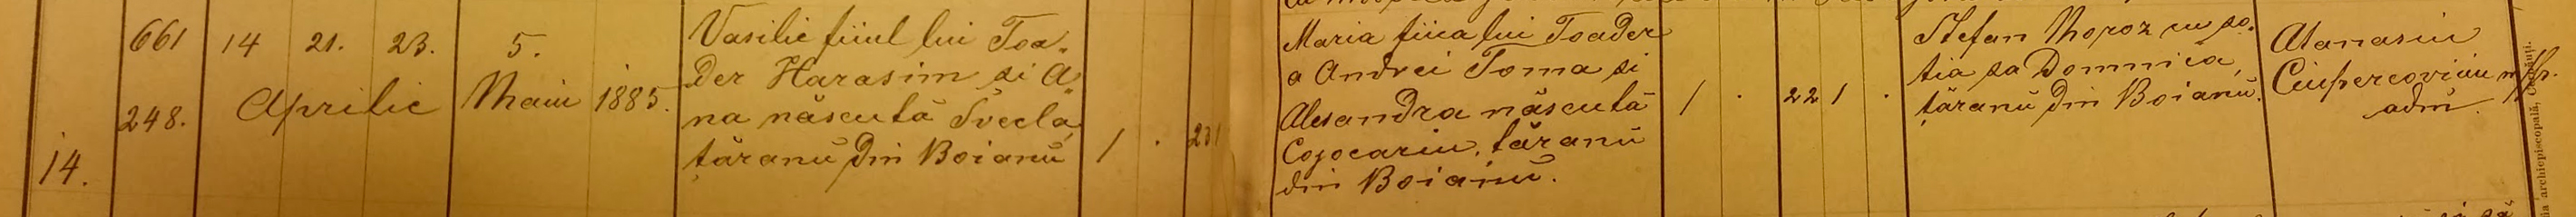 661 14 21. 23. 5.
14. 248. Aprilie Maiu 1885.
Vasilie fiiul lui Toa„
der Harasim si A„
na născută Svecla,
țăranŭ din Boianŭ
1 . 231
Maria fiica lui Toader
a Andrei Toma si
Alesandra născută
Cojocariu, țăranŭ
din Boianŭ.
1 . 22 1 .
Stefan Moroz cu so„
tia sa Domnica,
țăranŭ din Boianŭ.
Atanasiu
Ciupercoviciu m/p.
adm.
archiepiscopală,